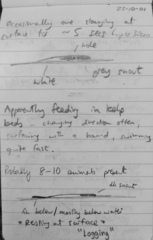 25-10-01
Occasionally one changing at
surface for ~ 5 secs
white
grey snout
Apparently feeding in kelp
beds, changing direction often,
surfacing with a hand, swimming
quite fast.
Probably 8-10 animals present
snout
below/mostly below water
* Resting at surface *
"Logging"